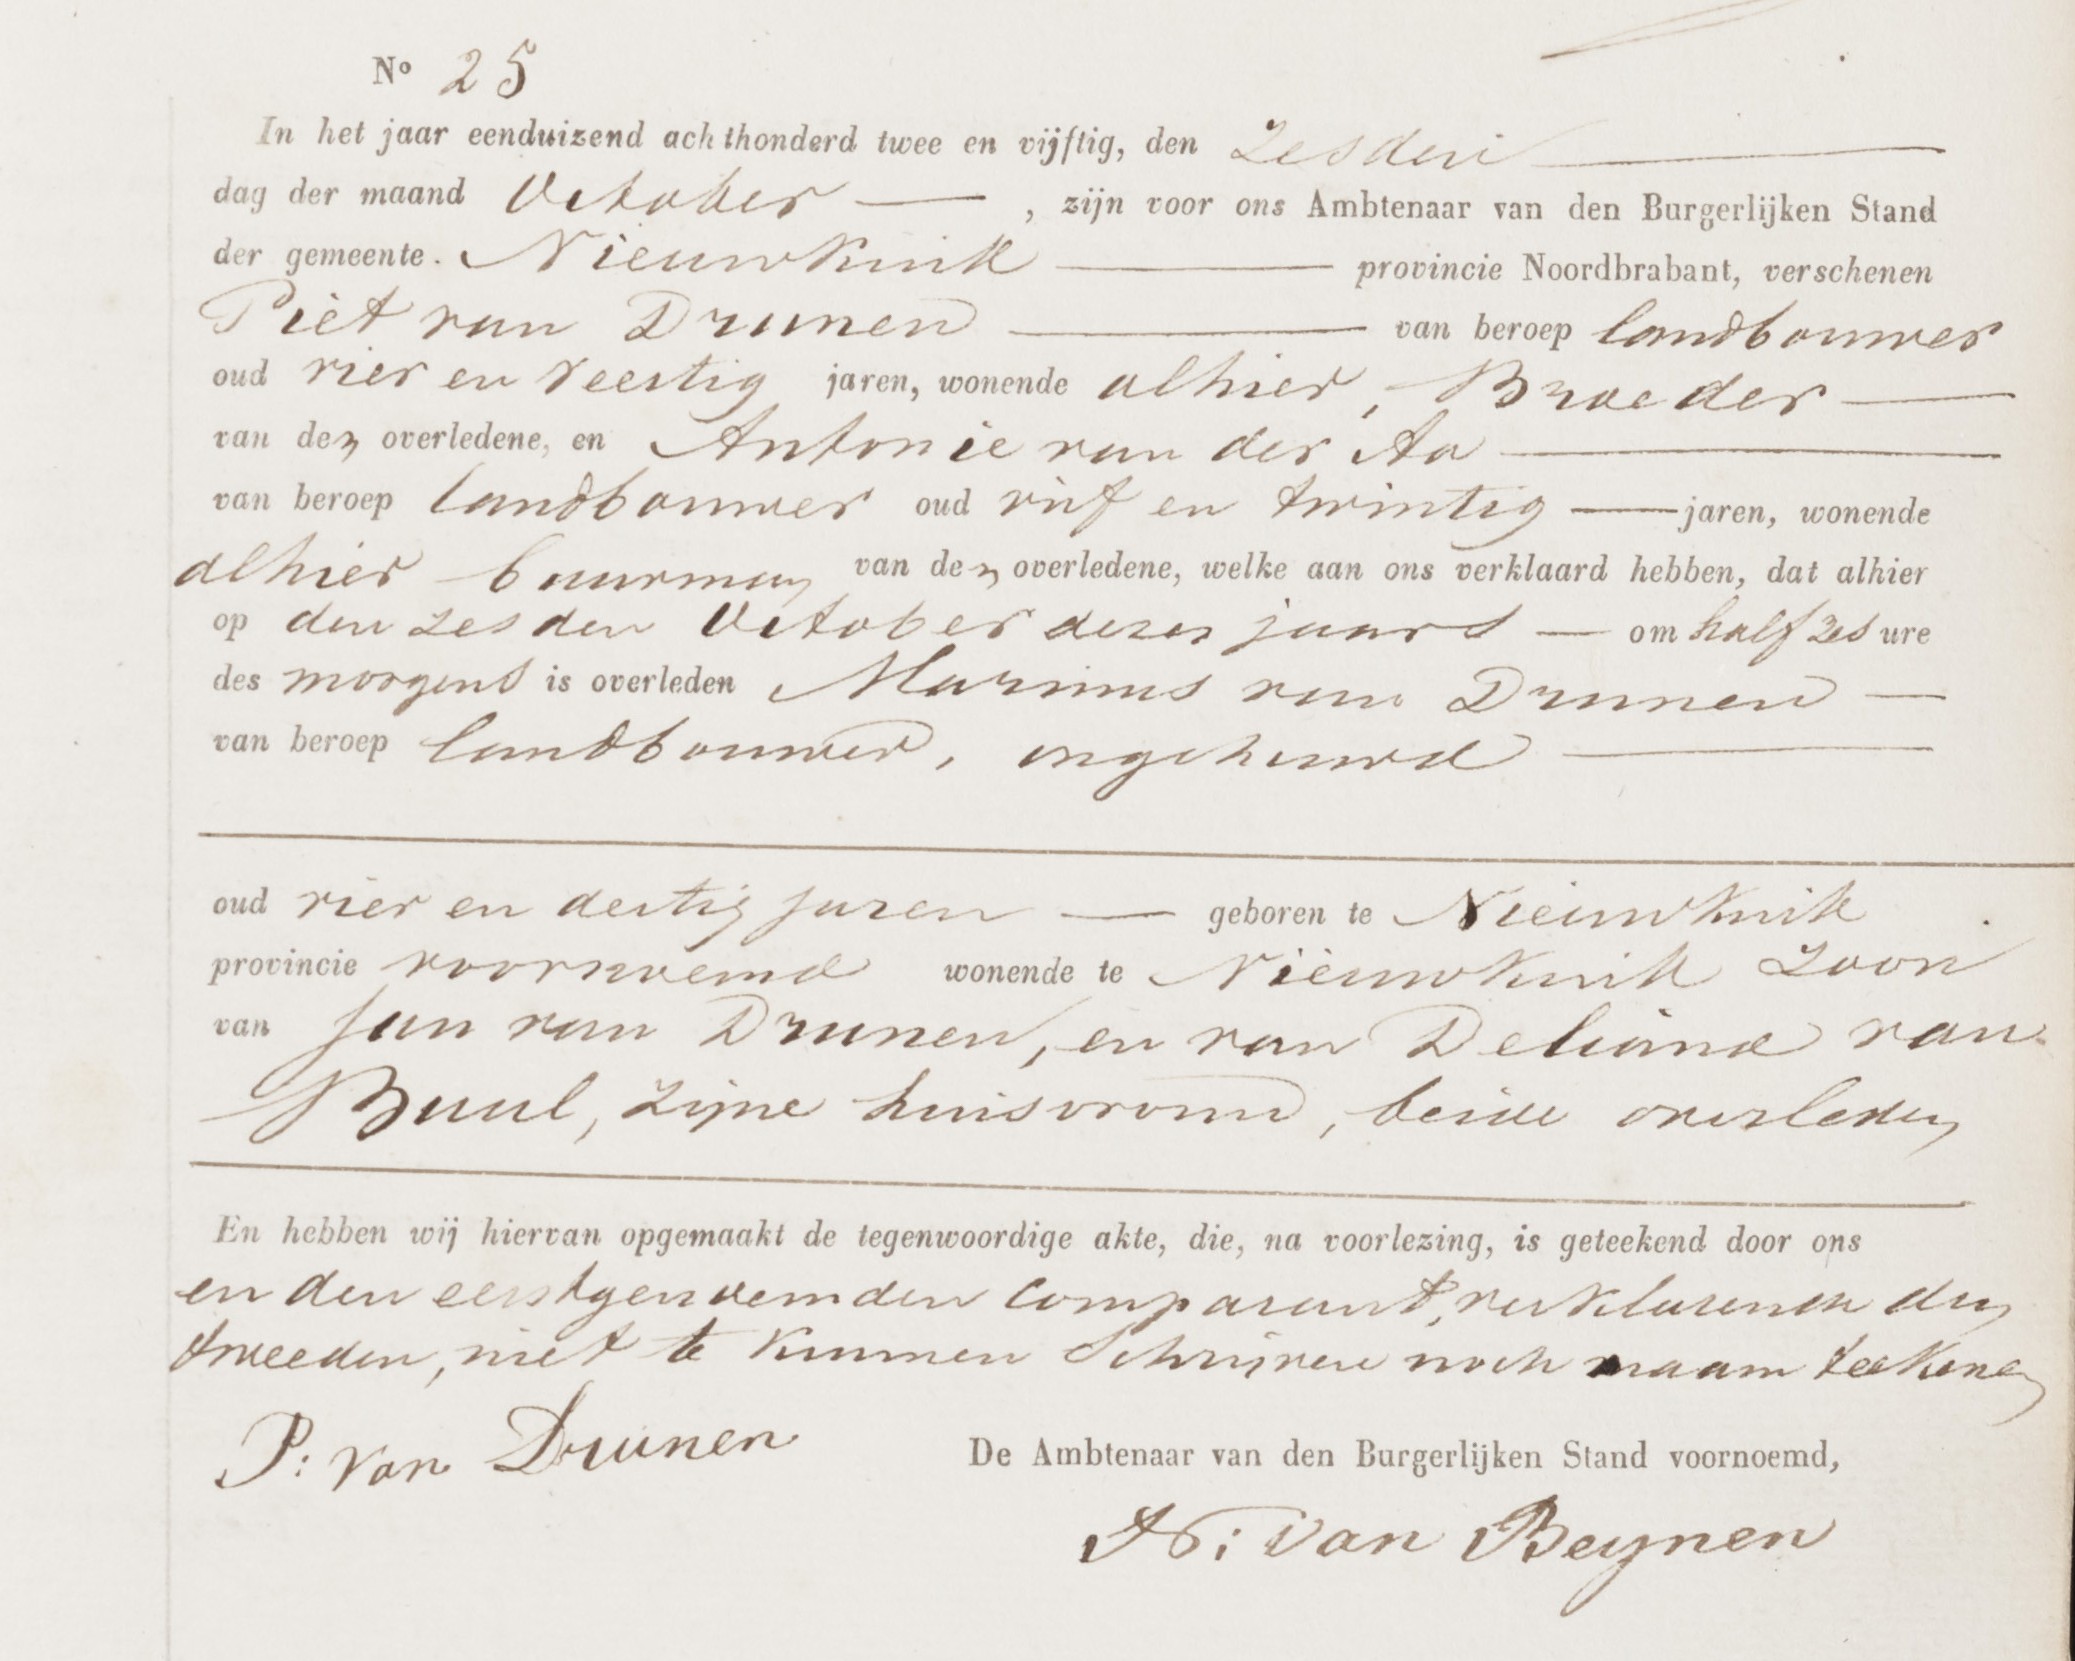 No 25
In het jaar eenduizend achthonderd twee en vijftig, den Zesden
dag der maand October , zijn voor ons Ambtenaar van den Burgerlijken Stand
der gemeente. Nieuwkuik provincie Noordbrabant, verschenen
Piet van Drunen van beroep landbouwer
oud vier en veertig jaren, wonende alhier, Broeder
van den overledene, en Antonie van der Aa
van beroep landbouwer oud vijf en twintig jaren, wonende
alhier buurman van den overledene, welke aan ons verklaard hebben, dat alhier
op den zesden October dezes jaars om half zes ure
des morgens is overleden Marinus van Drunen
van beroep landbouwer, ongehuwd
oud vier en dertig jaren geboren te Nieuwkuik
provincie voornoemd wonende te Nieuwkuik Zoon
van Jan van Drunen, en van Deliana van
Buul, zijne huisvrouw, beide overleden
En hebben wij hiervan opgemaakt de tegenwoordige akte, die, na voorlezing, is geteekend door ons
en den eerstgenoemden Comparant, verklarende den
tweeden, niet te kunnen Schrijven noch naam teekenen
P: van Drunen
De Ambtenaar van den Burgerlijken Stand voornoemd,
van Beynen